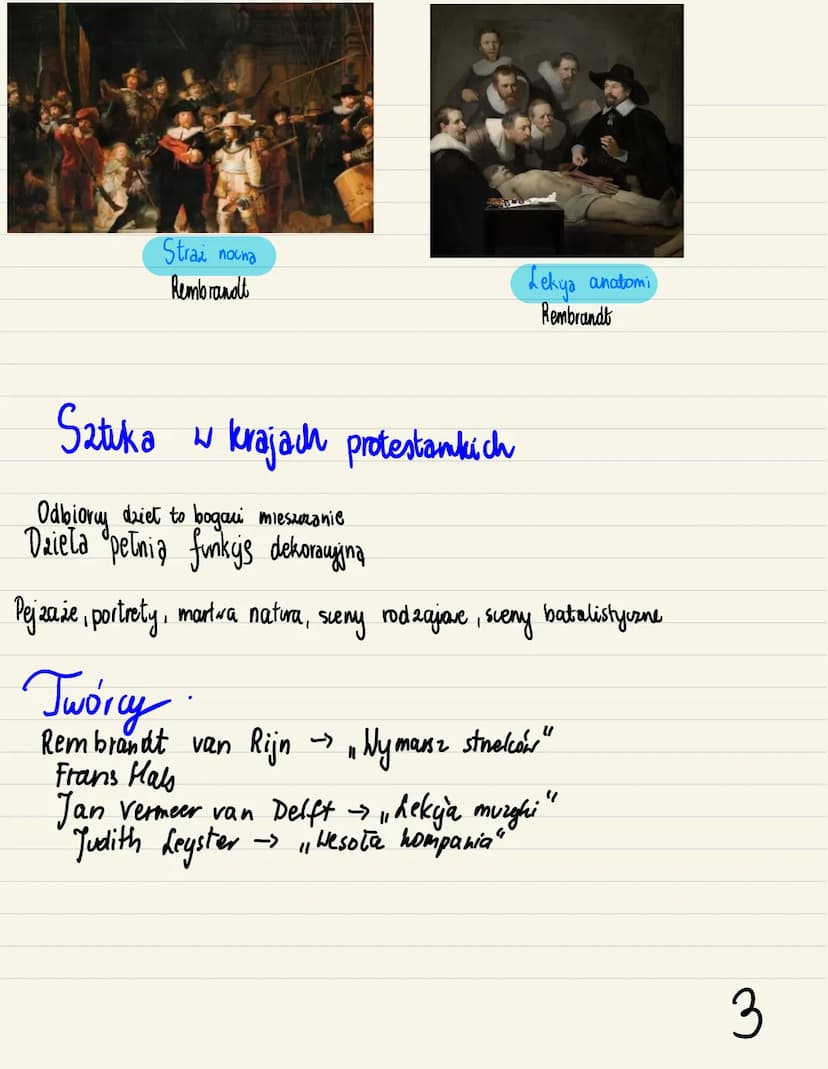 Straż nocna
Rembrandt
Lekcja anatomi
Rembrandt
Sztuka w krajach protestanckich
Odbiorcy dzieł to bogaci mieszczanie
Dzieła pełnią funkcję dekoracyjną
Pejzaże, portrety, martwa natura, sceny rodzajowe, sceny batalistyczne
Twórcy.
Rembrandt van Rijn → „Wymarsz strzelców"
Frans Hals
Jan Vermeer van Delft → „Lekcja muzyki"
Judith Leyster → „Wesoła kompania"
3